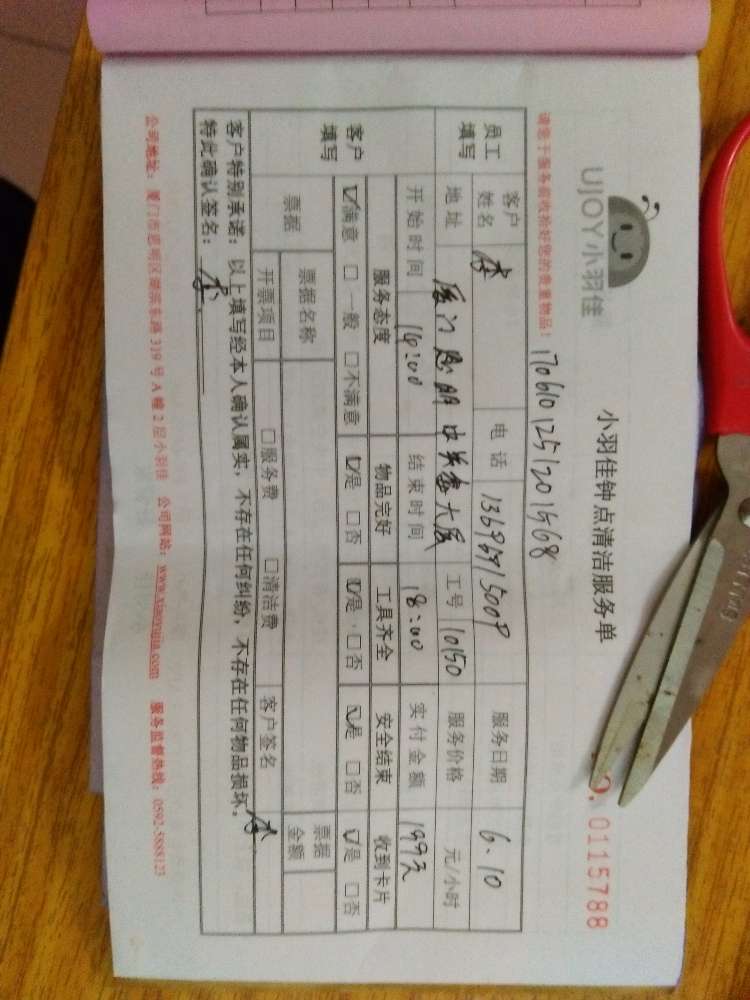 UJOY小羽佳
小羽佳钟点清洁服务单
0115788
请您于服务前收拾好您的贵重物品！
1706101251201568
员工填写 客户姓名 李 电话 服务日期 6.10
地址 厦门思明 大厦 工号 10150 服务价格 元/小时
开始时间 14:00 结束时间 18:00 实付金额 199元
客户填写 服务态度 物品完好 工具齐全 安全结束 收到卡片
☑满意 □一般 □不满意 ☑是 □否 ☑是 □否 ☑是 □否 ☑是 □否
票据 票据名称 票据金额
开票项目 □服务费 □清洁费 客户签名 李
客户特别承诺：以上填写经本人确认属实，不存在任何纠纷，不存在任何物品损坏。
特此确认签名：李
公司地址：厦门市思明区湖滨东路319号A幢2层小羽佳 公司网站：www.xiaoyujia.com 服务监督热线：0592-5888123